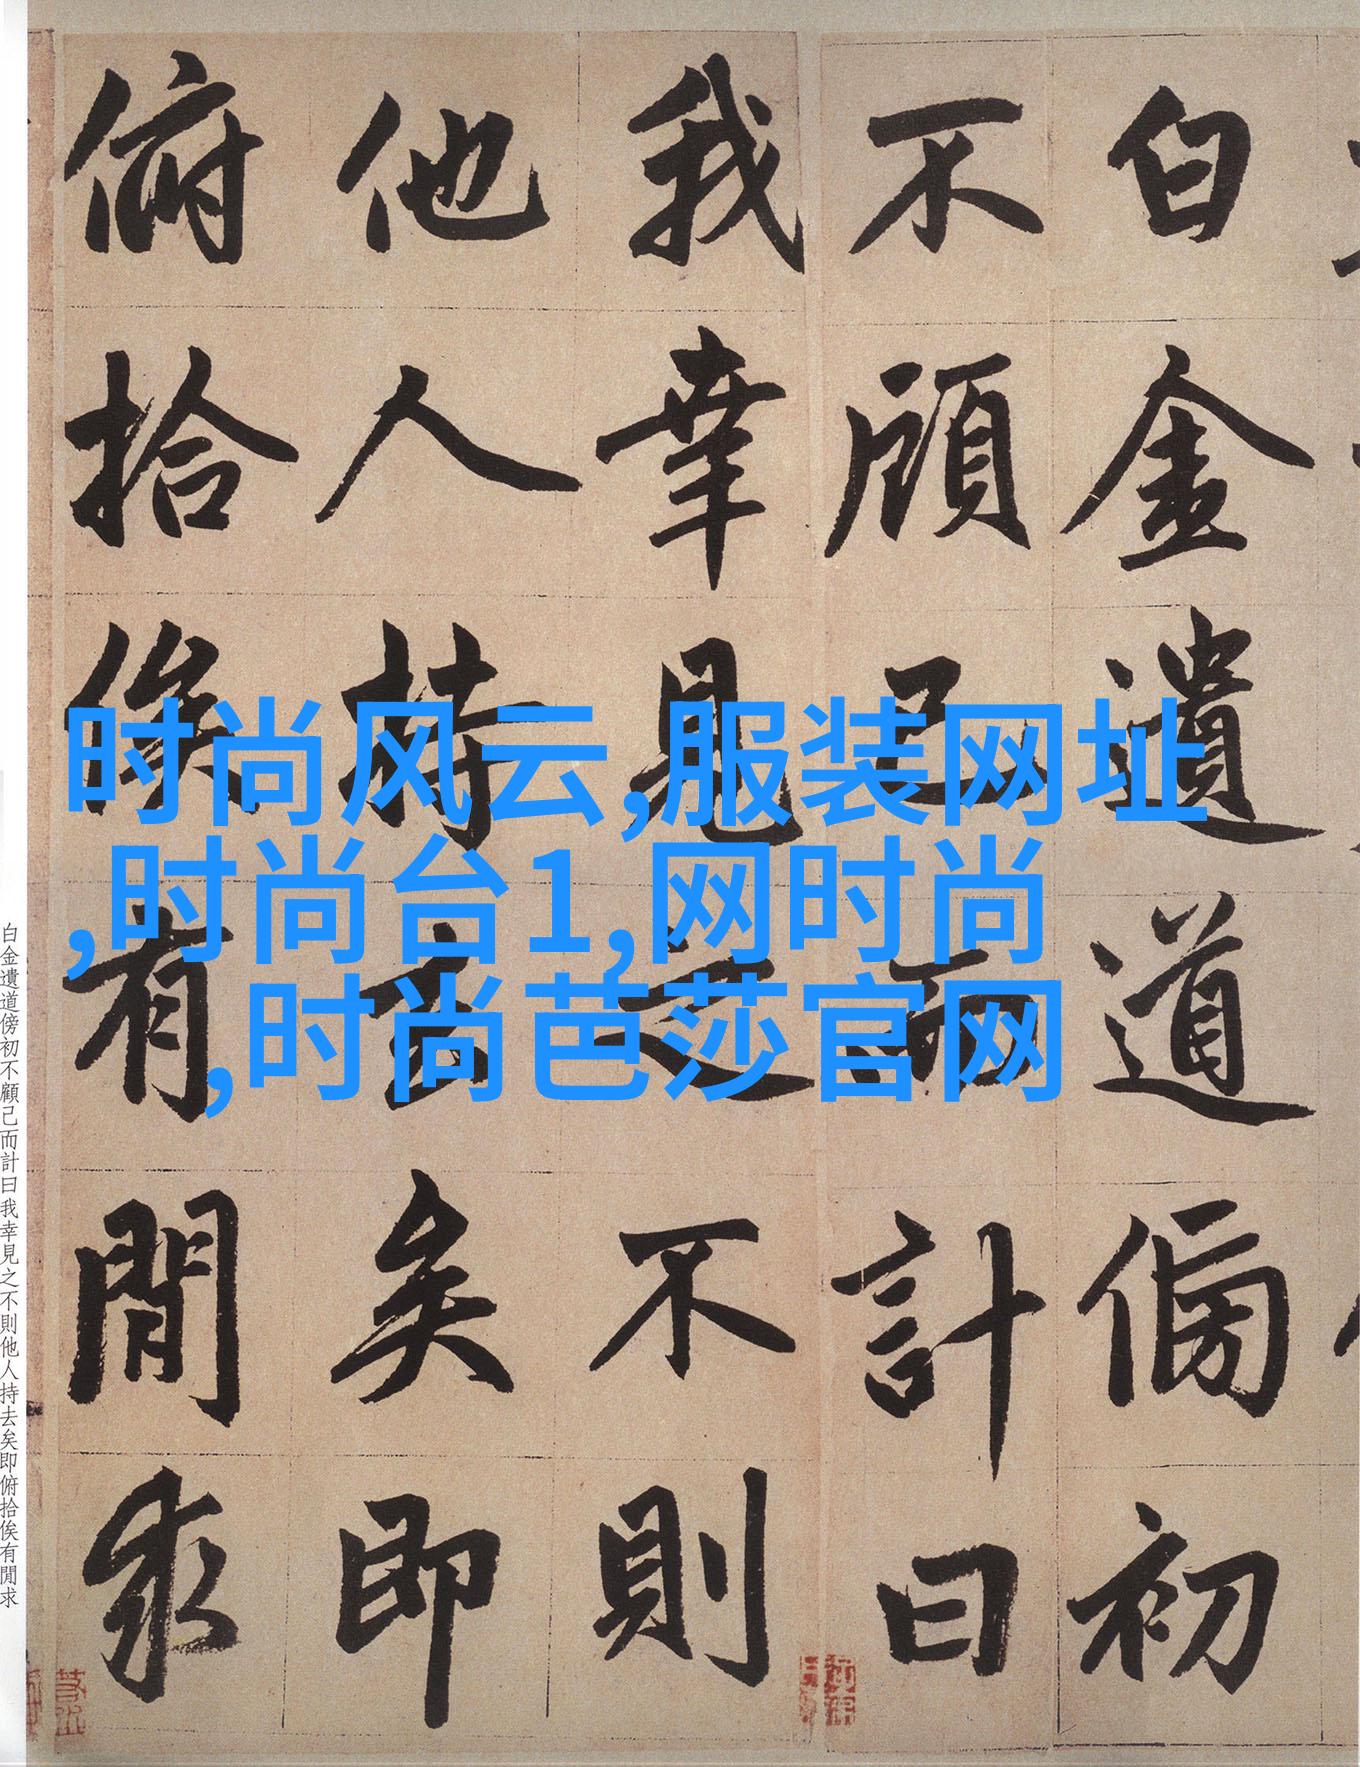 白金遺道傍初
不顧己而計曰
我幸見之不則
他人持去矣即
俯拾俟有閒求
时尚风云,服装网址
,时尚台1,网时尚
,时尚芭莎官网
白金遺道傍初不顧己而計曰我幸見之不則他人持去矣即俯拾俟有閒求